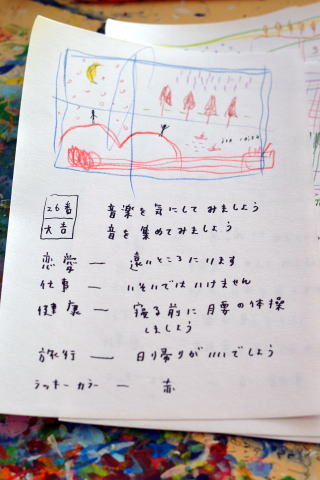 26番
大吉
音楽を気にしてみましょう
音を集めてみましょう
恋愛 — 遠いところにいます
仕事 — いそいではいけません
健康 — 寝る前に月要の体操
しましょう
旅行 — 日り帰りがいいでしょう
ラッキーカラー — 赤